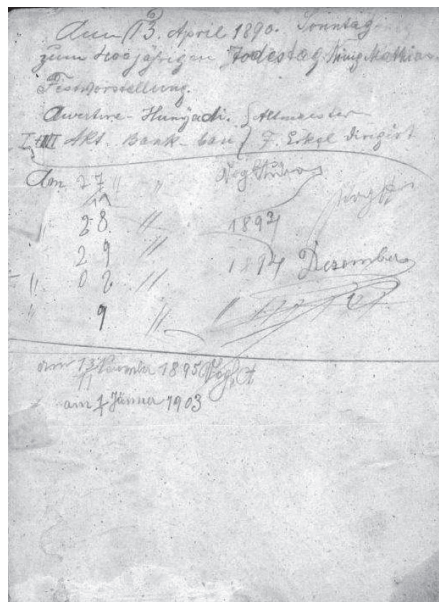 Am 13. April 1890. Sonntag
zum 400 jährigen Todestag König Mathias
Festvorstellung.
Ouverture - Hunyadi. { Altmeister
I. III Akt. Bank-ban { F. Erkel dirigirt
den 27 "
28 " 1894
29 " 1894 Dezember
" 02 "
" 9 " "
am 13 November 1895 Voght
am 1 Jänner 1903